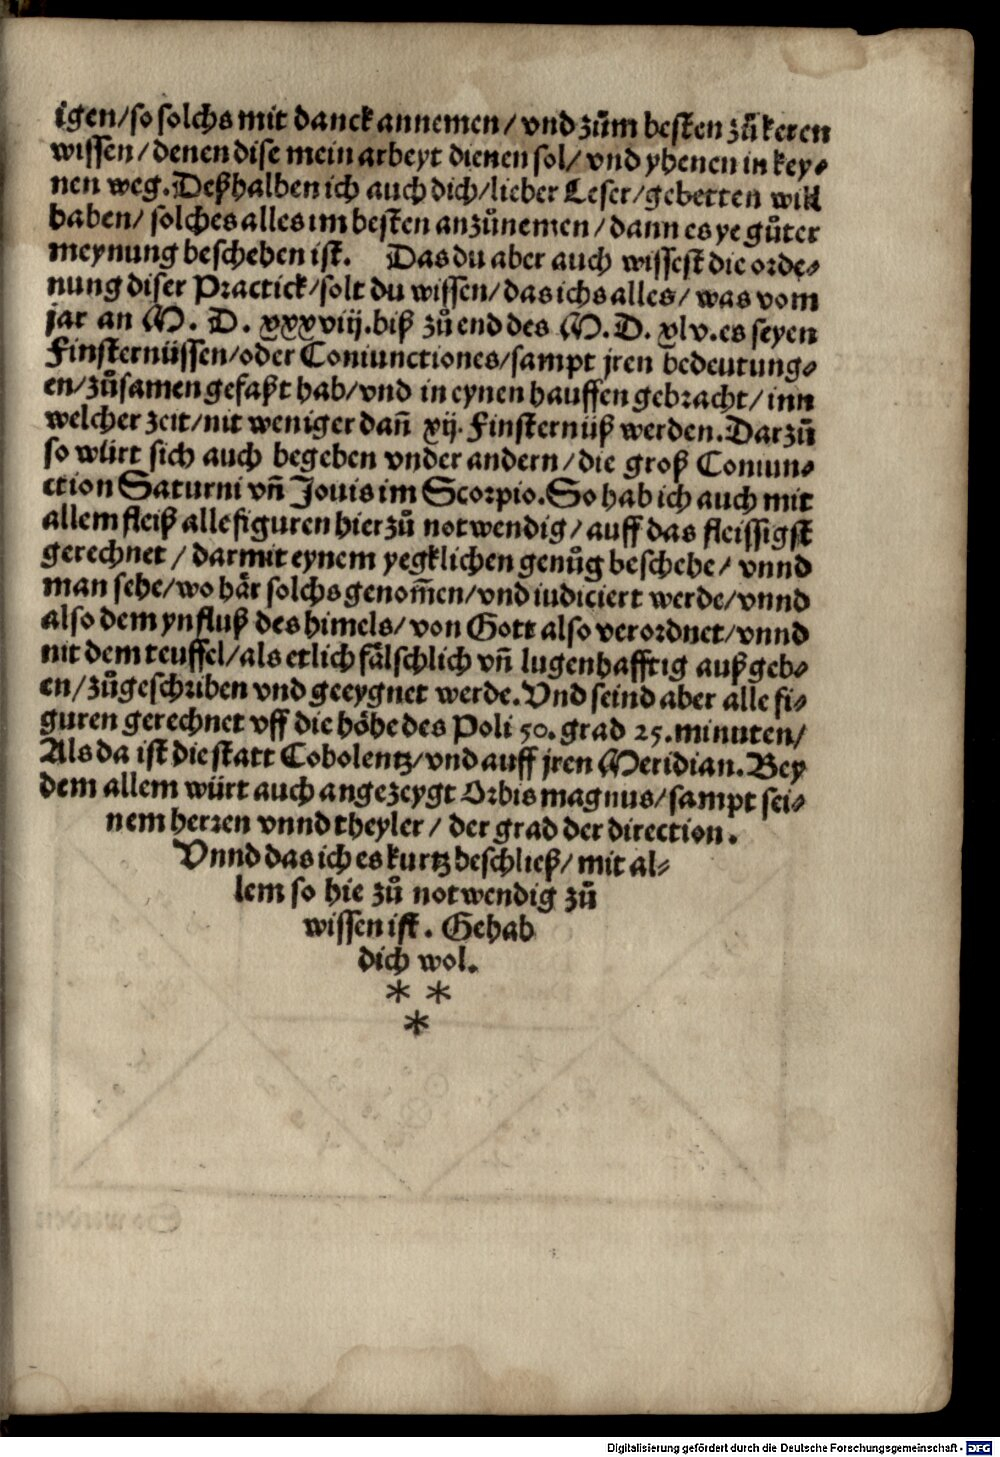 igen/so solchs mit danck annemen/vnd zům besten zů keren
wissen/denen dise mein arbeyt dienen sol/vnd yhenen in key⸗
nen weg. Deßhalben ich auch dich/lieber Leser/gebetten will
haben/solches alles im besten anzůnemen/dann es ye gůter
meynung beschehen ist. Das du aber auch wissest die orde⸗
nung diser Practick/solt du wissen/das ichs alles/was vom
jar an M. D. xxxviij. biß zů end des M. D. xlv. es seyen
Finsternüssen/oder Coniunctiones/sampt jren bedeutung⸗
en/zůsamen gefaßt hab/vnd in eynen hauffen gebracht/inn
welcher zeit/nit weniger dañ xij. Finsternüß werden. Darzů
so würt sich auch begeben vnder andern/die groß Coniun⸗
ction Saturni vñ Jouis im Scorpio. So hab ich auch mit
allem fleiß alle figuren hierzů notwendig/auff das fleissigst
gerechnet/darmit eynem yegklichen genůg beschehe/vnnd
man sehe/wo här solchs genom̃en/vnd iudiciert werde/vnnd
also dem ynfluß des himels/von Gott also verordnet/vnnd
nit dem teuffel/als etlich fälschlich vñ lugenhafftig außgeb⸗
en/zůgeschriben vnd geeygnet werde. Vnd seind aber alle fi⸗
guren gerechnet vff die höhe des Poli 50. grad 25. minuten/
Als da ist die statt Cobolentz/vnd auff jren Meridian. Bey
dem allem würt auch angezeygt Orbis magnus/sampt sei⸗
nem herren vnnd theyler/der grad der direction.
Vnnd das ich es kurtz beschließ/mit al⸗
lem so hie zů notwendig zů
wissen ist. Gehab
dich wol.
* *
*
Digitalisierung gefördert durch die Deutsche Forschungsgemeinschaft - DFG